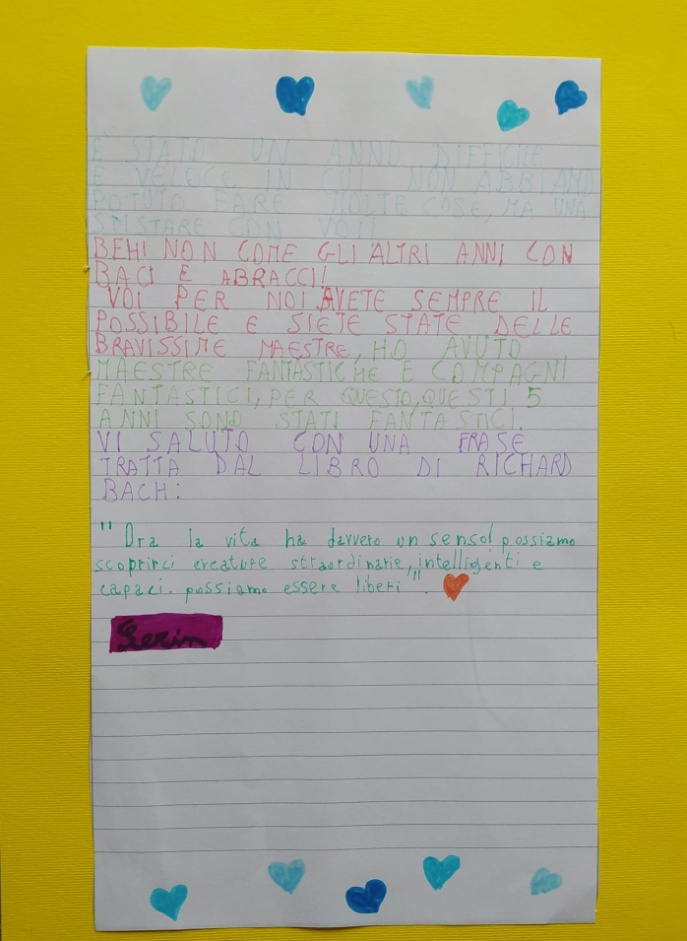 È STATO UN ANNO DIFFICILE
E VELOCE IN CUI NON ABBIAMO
POTUTO FARE MOLTE COSE, MA UNA
SI: STARE CON VOI!
BEH! NON COME GLI ALTRI ANNI, CON
BACI E ABRACCI!
VOI PER NOI AVETE SEMPRE IL
POSSIBILE E SIETE STATE DELLE
BRAVISSIME MAESTRE, HO AVUTO
MAESTRE FANTASTICHE E COMPAGNI
FANTASTICI, PER QUESTO, QUESTI 5
ANNI SONO STATI FANTASTICI.
VI SALUTO CON UNA FRASE
TRATTA DAL LIBRO DI RICHARD
BACH:
"Ora la vita ha davvero un senso! possiamo
scoprirci creature straordinarie, intelligenti e
capaci. possiamo essere liberi".